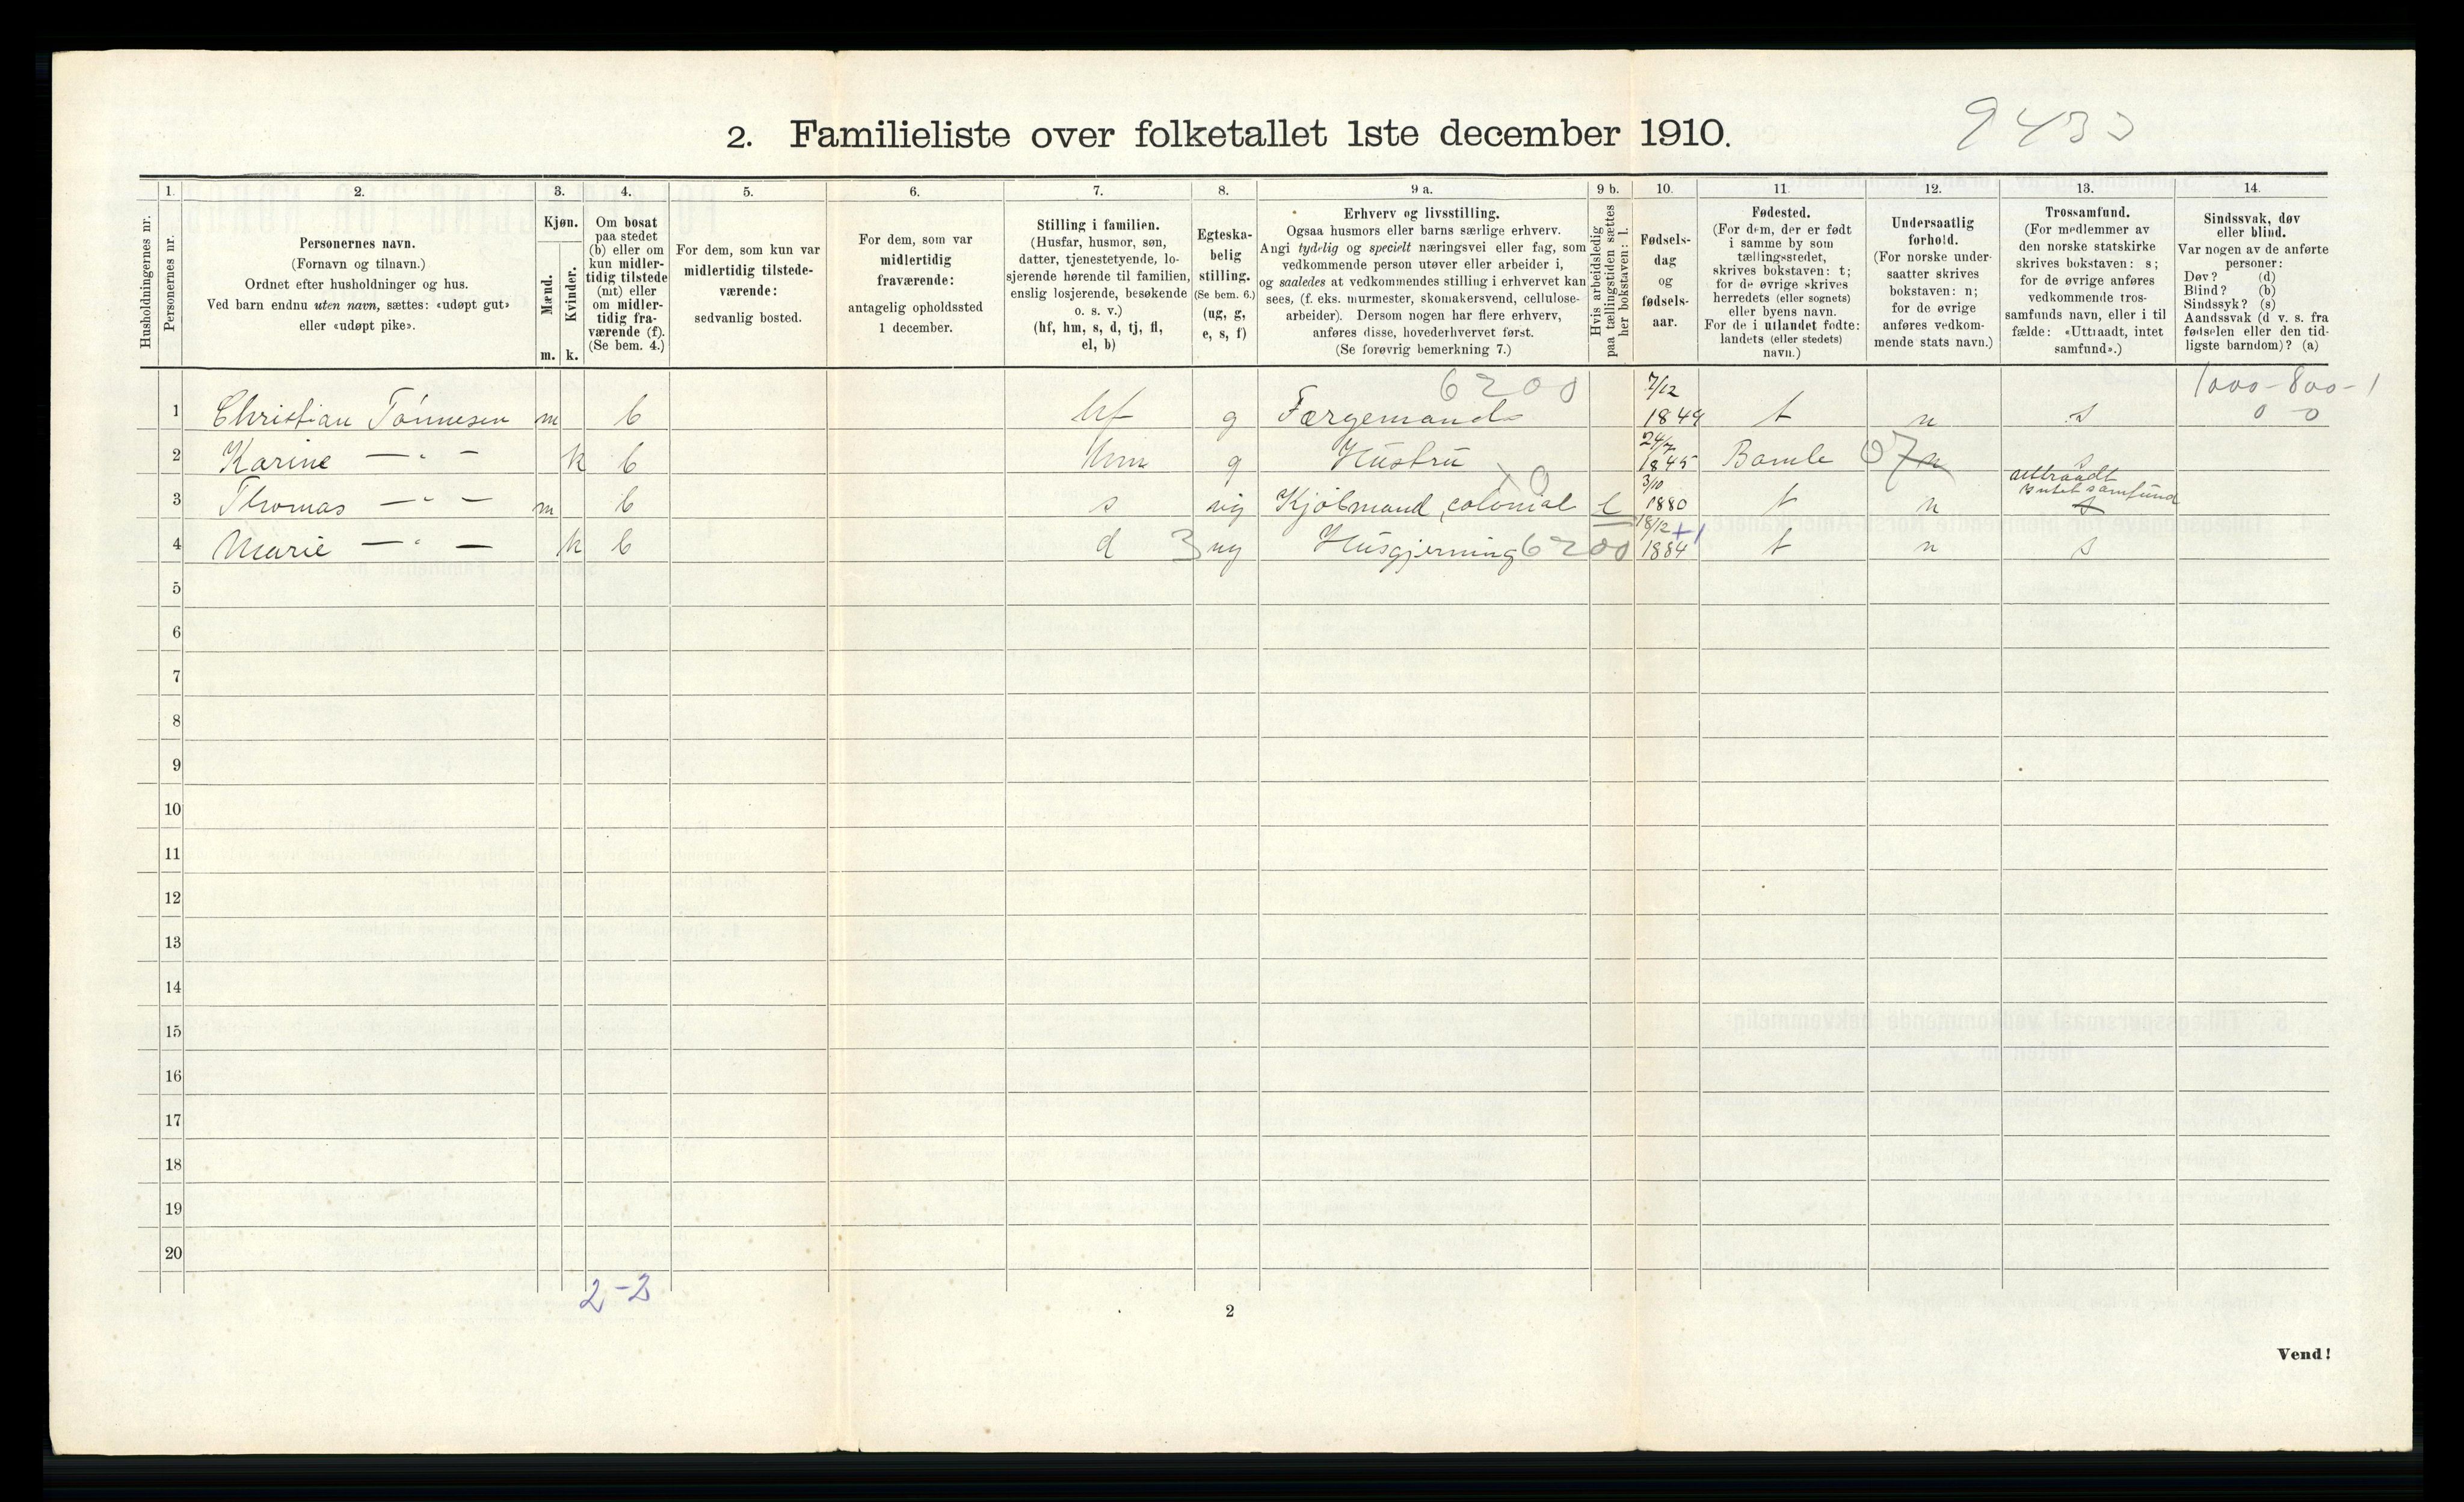 9433
2. Familieliste over folketallet 1ste december 1910.
Husholdningernes nr.
1. Personernes nr.
2. Personernes navn.
(Fornavn og tilnavn.)
Ordnet efter husholdninger og hus.
Ved barn endnu uten navn, sættes: «udøpt gut»
eller «udøpt pike».
3. Kjøn.
Mænd. m.
Kvinder. k.
4. Om bosat
paa stedet
(b) eller om
kun midler-
tidig tilstede
(mt) eller
om midler-
tidig fra-
værende (f).
(Se bem. 4.)
5. For dem, som kun var
midlertidig tilstede-
værende:
sedvanlig bosted.
6. For dem, som var
midlertidig
fraværende:
antagelig opholdssted
1 december.
7. Stilling i familien.
(Husfar, husmor, søn,
datter, tjenestetyende, lo-
sjerende hørende til familien,
enslig losjerende, besøkende
o. s. v.)
(hf, hm, s, d, tj, fl,
el, b)
8. Egteska-
belig
stilling.
(Se bem. 6.)
(ug, g,
e, s, f)
9 a. Erhverv og livsstilling.
Ogsaa husmors eller barns særlige erhverv.
Angi tydelig og specielt næringsvei eller fag, som
vedkommende person utøver eller arbeider i,
og saaledes at vedkommendes stilling i erhvervet kan
sees, (f. eks. murmester, skomakersvend, cellulose-
arbeider). Dersom nogen har flere erhverv,
anføres disse, hovederhvervet først.
(Se forøvrig bemerkning 7.)
9 b. Hvis arbeidsledig
paa tællingstiden sættes
her bokstaven: l.
10. Fødsels-
dag
og
fødsels-
aar.
11. Fødested.
(For dem, der er født
i samme by som
tællingsstedet,
skrives bokstaven: t;
for de øvrige skrives
herredets (eller sognets)
eller byens navn.
For de i utlandet fødte:
landets (eller stedets)
navn.)
12. Undersaatlig
forhold.
(For norske under-
saatter skrives
bokstaven: n;
for de øvrige
anføres vedkom-
mende stats navn.)
13. Trossamfund.
(For medlemmer av
den norske statskirke
skrives bokstaven: s;
for de øvrige anføres
vedkommende tros-
samfunds navn, eller i til
fælde: «Uttraadt, intet
samfund».)
14. Sindssvak, døv
eller blind.
Var nogen av de anførte
personer:
Døv? (d)
Blind? (b)
Sindssyk? (s)
Aandssvak (d v. s. fra
fødselen eller den tid-
ligste barndom)? (a)
6200 1000-800-1
0 0
1 Christian Tönnesen m b hf g Færgemand 7/12 1849 t n s
2 Karine — " — k b hm g Hustru 24/7 1845 Bamle 07 n s
3 Thomas — " — m b s ug Kjöbmand, colonial l 3/10 1880 t n uttraadt intet samfund s
4 Marie — " — k b d 3 ug Husgjerning 6200 18/12 1884 +1 t n s
5
6
7
8
9
10
11
12
13
14
15
16
17
18
19
20
2-2
2
Vend!